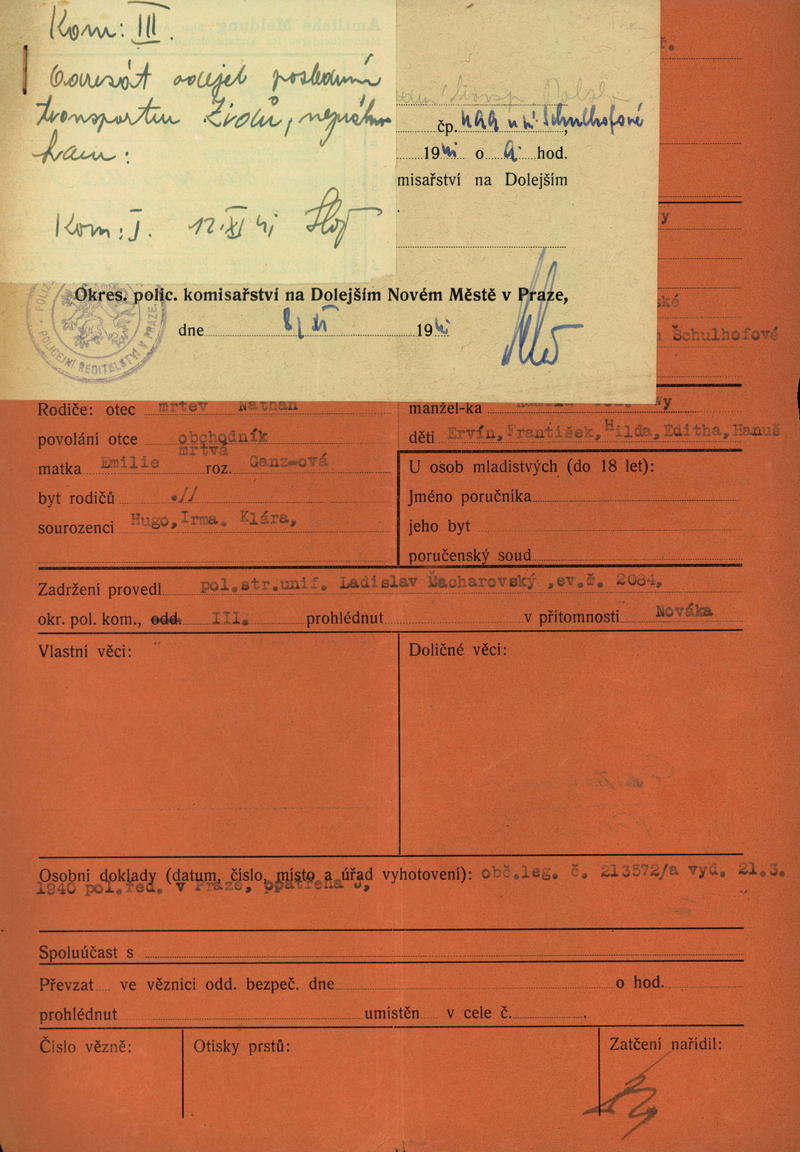 Kom: III.
odejel posledním
transportem Židů,
Kom: I. 12 XI 41
čp. u Schulhofové
1941 o hod.
misařství na Dolejším
POLICEJNÍ ŘEDITELSTVÍ V PRAZE
Okres. polic. komisařství na Dolejším Novém Městě v Praze,
dne 8/XI 1941
ské
Schulhofové
Rodiče: otec mrtev Nathan
manžel-ka
povolání otce obchodník
děti Ervín, František, Hilda, Editha, Hanuš
mrtvá
matka Emilie roz. Ganzová
U osob mladistvých (do 18 let):
byt rodičů .//
Jméno poručníka
sourozenci Hugo, Irma. Klára,
jeho byt
poručenský soud
Zadržení provedl pol.str.unif. Ladislav Macharovský ,ev.č. 2084,
okr. pol. kom., odd. III. prohlédnut v přítomnosti Nováka
Vlastní věci:
Doličné věci:
Osobní doklady (datum, číslo, místo a úřad vyhotovení): obč.leg. č. 213572/a vyd. 21.3.
1940 pol.řed. v Praze, opatřena J,
Spoluúčast s
Převzat ve věznici odd. bezpeč. dne o hod.
prohlédnut umístěn v cele č. .
Číslo vězně:
Otisky prstů:
Zatčení nařídil: